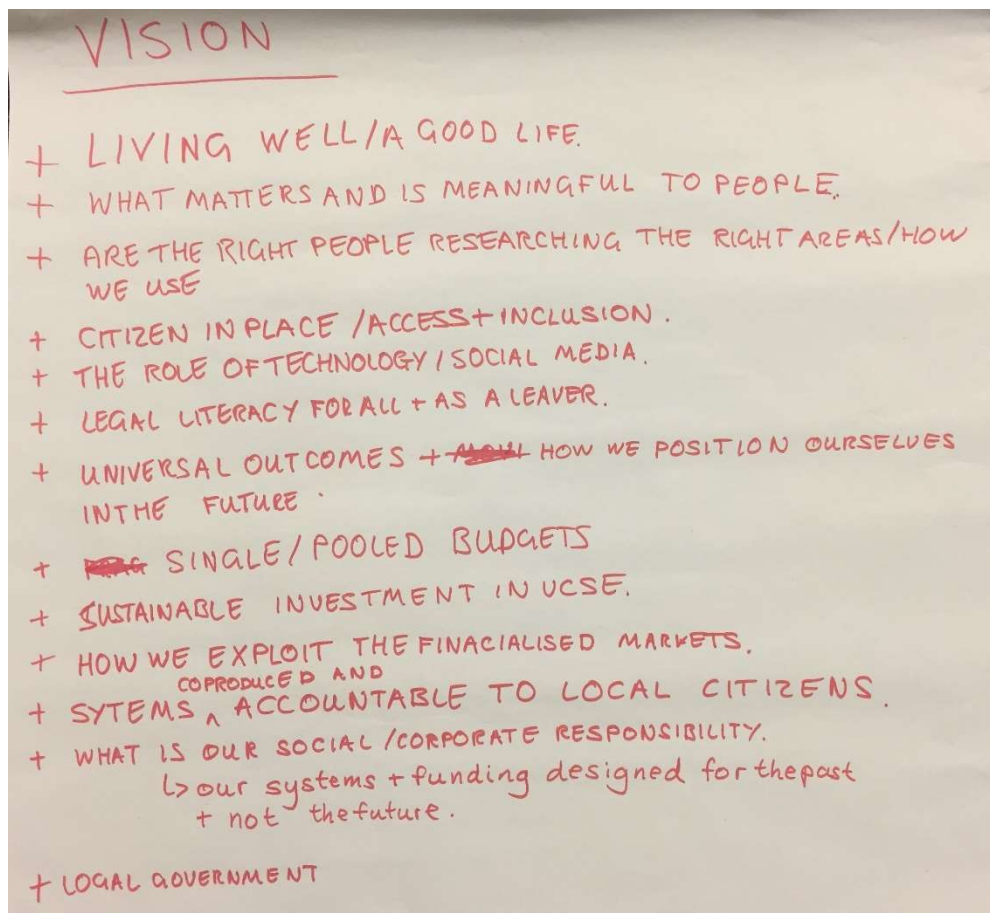 VISION
+ LIVING WELL/A GOOD LIFE.
+ WHAT MATTERS AND IS MEANINGFUL TO PEOPLE.
+ ARE THE RIGHT PEOPLE RESEARCHING THE RIGHT AREAS/HOW
WE USE
+ CITIZEN IN PLACE /ACCESS + INCLUSION.
+ THE ROLE OF TECHNOLOGY / SOCIAL MEDIA.
+ LEGAL LITERACY FOR ALL + AS A LEAVER.
+ UNIVERSAL OUTCOMES + HOW WE POSITION OURSELVES
IN THE FUTURE.
+ SINGLE/POOLED BUDGETS
+ SUSTAINABLE INVESTMENT IN VCSE.
+ HOW WE EXPLOIT THE FINACIALISED MARKETS.
COPRODUCED AND
+ SYTEMS ^ ACCOUNTABLE TO LOCAL CITIZENS.
+ WHAT IS OUR SOCIAL /CORPORATE RESPONSIBILITY.
↳ our systems + funding designed for the past
+ not the future.
+ LOCAL GOVERNMENT